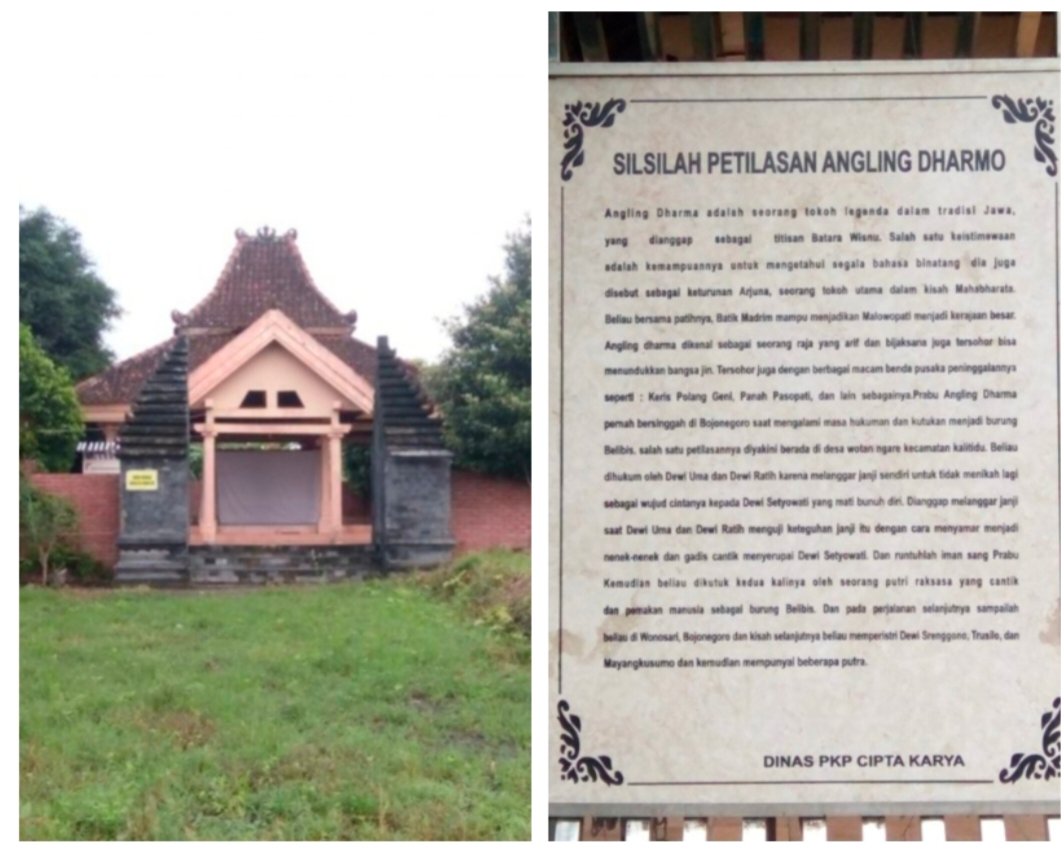 SILSILAH PETILASAN ANGLING DHARMO
Angling Dharma adalah seorang tokoh legenda dalam tradisi Jawa,
yang dianggap sebagai titisan Batara Wisnu. Salah satu keistimewaan
adalah kemampuannya untuk mengetahui segala bahasa binatang dia juga
disebut sebagai keturunan Arjuna, seorang tokoh utama dalam kisah Mahabharata.
Beliau bersama patihnya, Batik Madrim mampu menjadikan Malowopati menjadi kerajaan besar.
Angling dharma dikenal sebagai seorang raja yang arif dan bijaksana juga tersohor bisa
menundukkan bangsa jin. Tersohor juga dengan berbagai macam benda pusaka peninggalannya
seperti : Keris Polang Geni, Panah Pasopati, dan lain sebagainya.Prabu Angling Dharma
pernah bersinggah di Bojonegoro saat mengalami masa hukuman dan kutukan menjadi burung
Belibis. salah satu petilasannya diyakini berada di desa wotan ngare kecamatan kalitidu. Beliau
dihukum oleh Dewi Uma dan Dewi Ratih karena melanggar janji sendiri untuk tidak menikah lagi
sebagai wujud cintanya kepada Dewi Setyowati yang mati bunuh diri. Dianggap melanggar janji
saat Dewi Uma dan Dewi Ratih menguji keteguhan janji itu dengan cara menyamar menjadi
nenek-nenek dan gadis cantik menyerupai Dewi Setyowati. Dan runtuhlah iman sang Prabu
Kemudian beliau dikutuk kedua kalinya oleh seorang putri raksasa yang cantik
dan pemakan manusia sebagai burung Belibis. Dan pada perjalanan selanjutnya sampailah
beliau di Wonosari, Bojonegoro dan kisah selanjutnya beliau memperistri Dewi Srenggono, Trusilo, dan
Mayangkusumo dan kemudian mempunyai beberapa putra.
DINAS PKP CIPTA KARYA